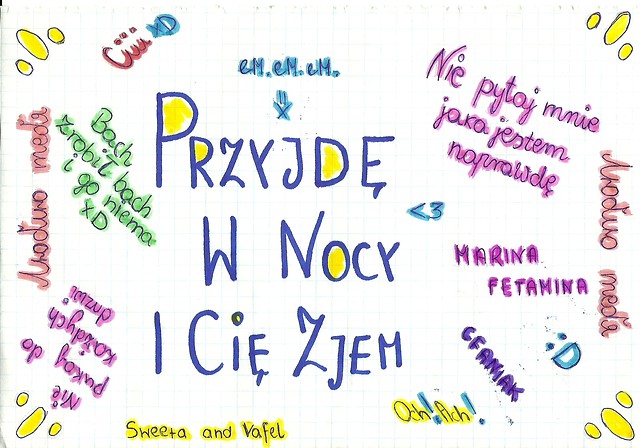 Ciii xD
em.em.em.
PRZYJDĘ
W NOCY
I CIĘ ZJEM
Nie pytaj mnie
jaka jestem
naprawdę
Bach
zrobiła bach
i go niema
xD
<3
MARINA
FETAMINA
:D
CFANIAK
Och! Ach!
Nie
pukaj do
każdych
drzwi
Sweeta and Vafel